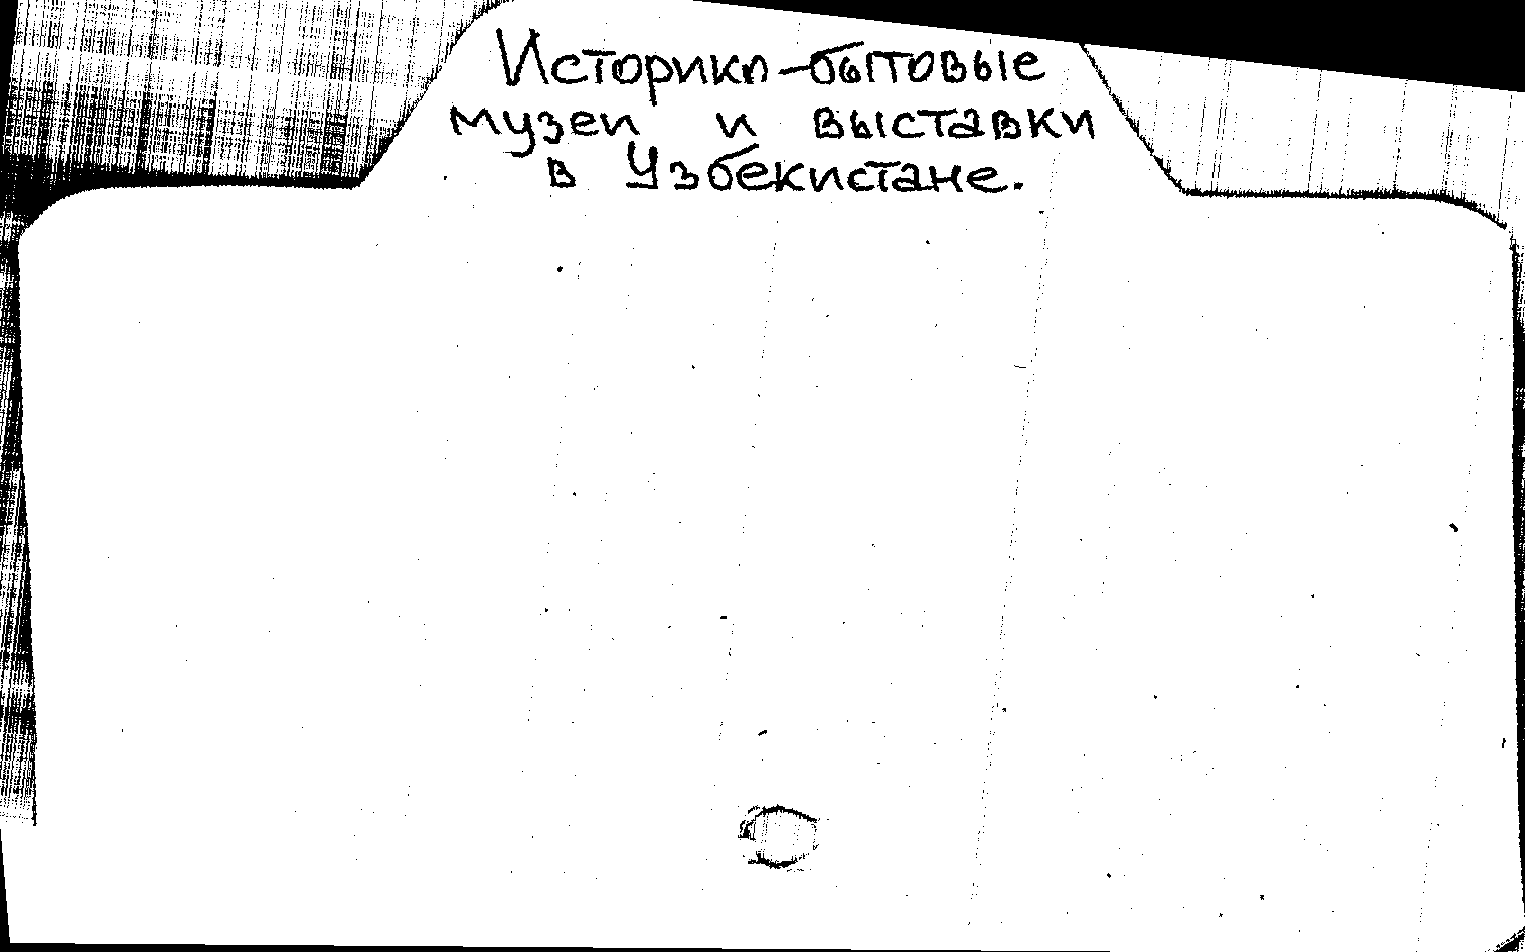 Историко-бытовые
музеи и выставки
в Узбекистане.